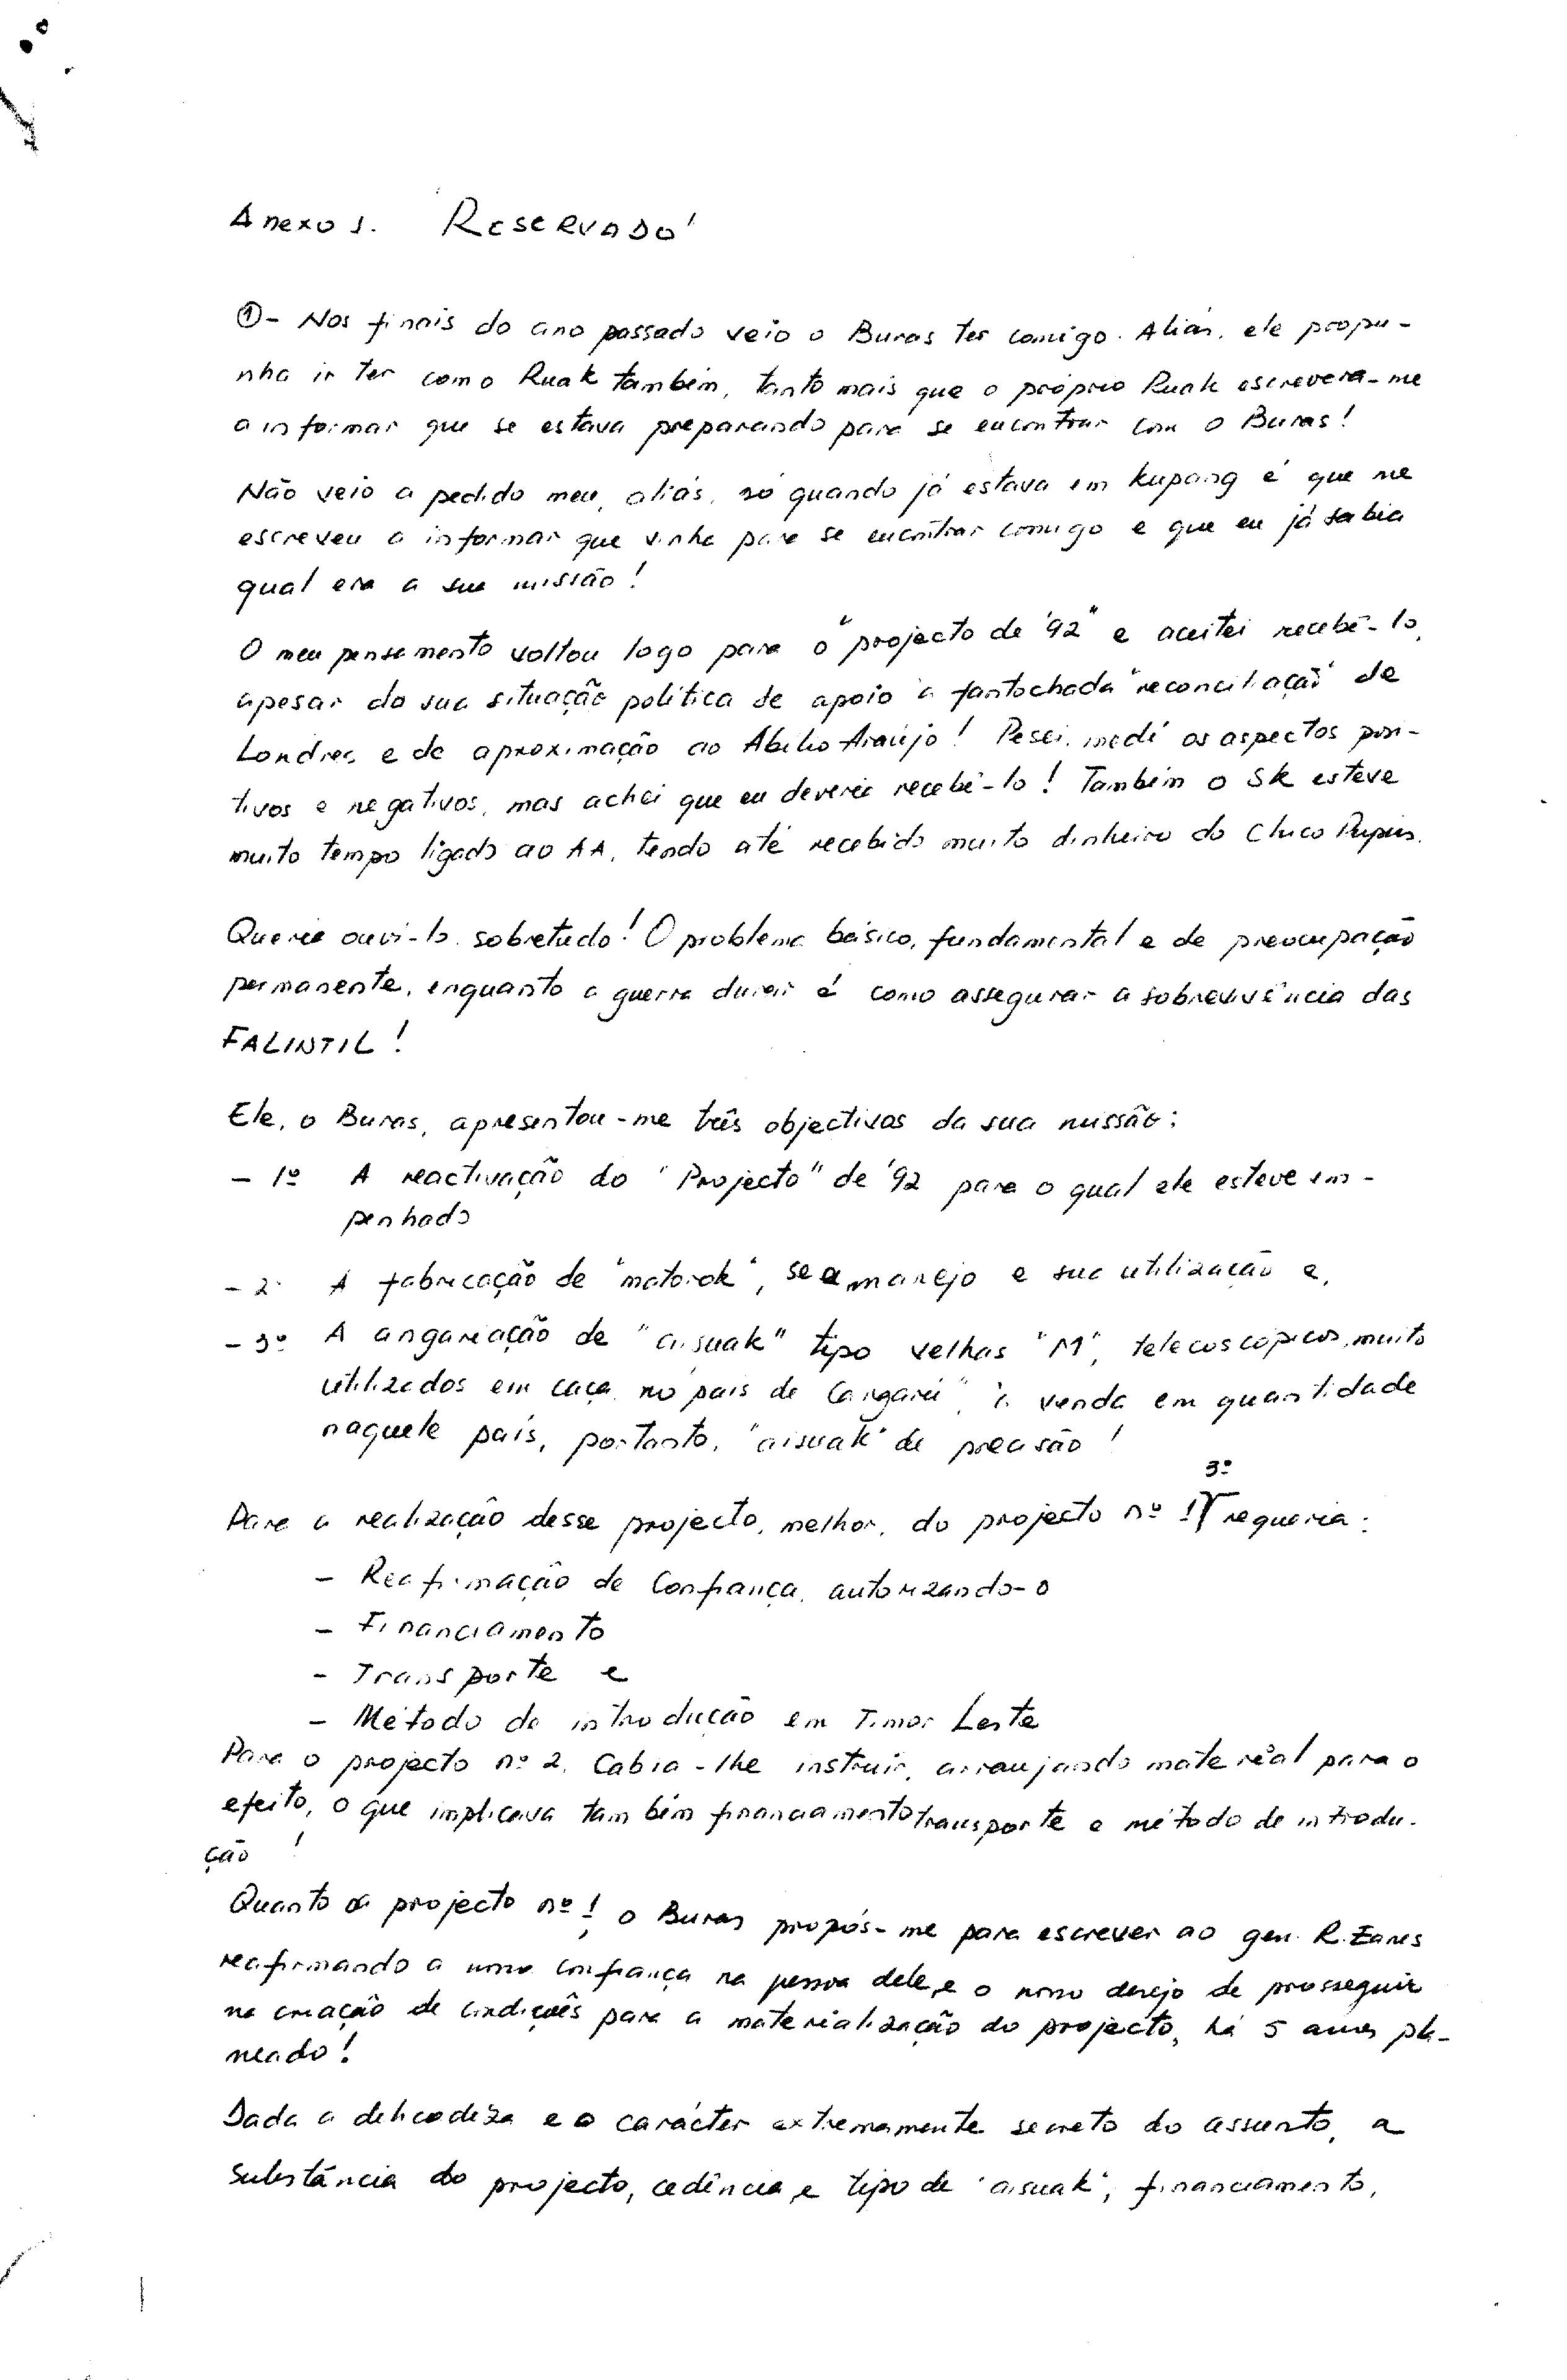 Anexo 1. Reservado!
①- Nos finais do ano passado veio o Buras ter comigo. Aliás, ele propu-
nha ir ter com o Ruak também, tanto mais que o próprio Ruak escrevera-me
a informar que se estava preparando para se encontrar com o Buras!
Não veio a pedido meu, aliás, só quando já estava em Kupang é que me
escreveu a informar que vinha para se encontrar comigo e que eu já sabia
qual era a sua missão!
O meu pensamento voltou logo para o "projecto de '92" e aceitei recebê-lo,
apesar da sua situação política de apoio à fantochada "reconciliação" de
Londres e de aproximação ao Abílio Araújo! Pesei, medi os aspectos posi-
tivos e negativos, mas achei que eu deveria recebê-lo! Também o SK esteve
muito tempo ligado ao AA, tendo até recebido muito dinheiro do Chico
Queria ouvi-lo, sobretudo! O problema básico, fundamental e de preocupação
permanente, enquanto a guerra durar é como assegurar a sobrevivência das
FALINTIL!
Ele, o Buras, apresentou-me três objectivos da sua missão:
- 1º A reactivação do "Projecto" de '92 para o qual ele esteve em-
penhado
- 2º A fabricação de "motorok", seu manejo e sua utilização e,
- 3º A angariação de "aisuak" tipo velhas "M", telecoscópicos, muito
utilizados em caça no "país de Cangurú", à venda em quantidade
naquele país, portanto, "aisuak" de precisão!
3º
Para a realização desse projecto, melhor, do projecto nº 1 requeria:
- Reafirmação de Confiança, autorizando-o
- Financiamento
- Transporte e
- Método de introdução em Timor Leste
Para o projecto nº 2, Cabia-lhe instruir, arranjando material para o
efeito, o que implicava também financiamento transporte e método de introdu-
ção!
Quanto ao projecto nº 1, o Buras propôs-me para escrever ao gen. R. Eanes
reafirmando a nossa confiança na pessoa dele, e o nosso desejo de prosseguir
na criação de condições para a materialização do projecto, há 5 anos pla-
neado!
Dada a delicadeza e o carácter extremamente secreto do assunto, a
substância do projecto, cedência e tipo de "aisuak", financiamento,